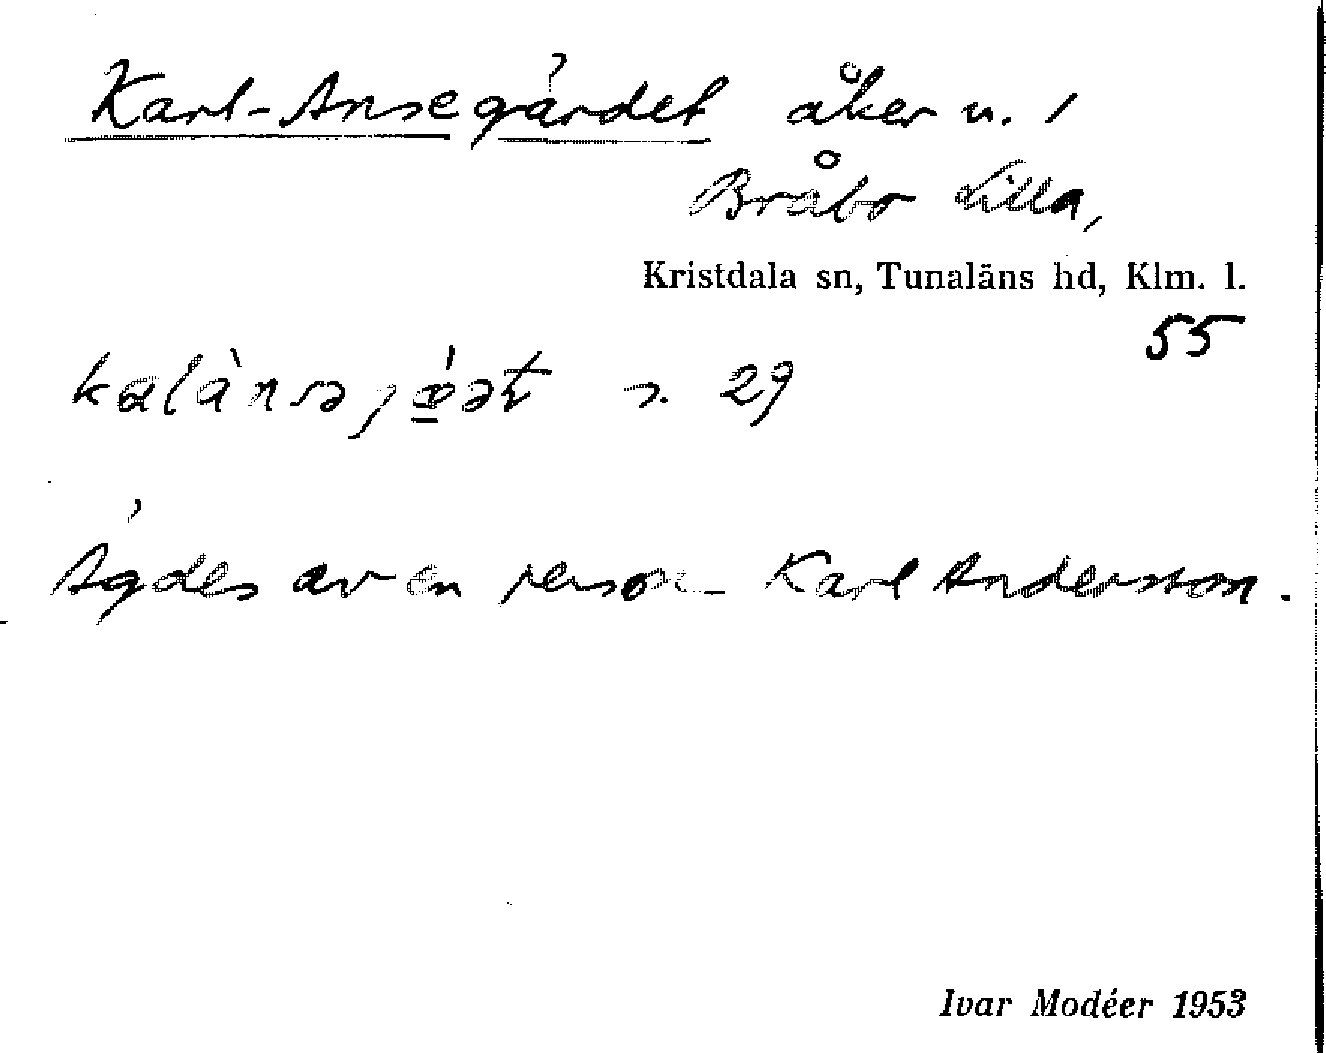 Karl-Ansegärdet åker n. 1
Bråbo Lilla,
Kristdala sn, Tunaläns hd, Klm. l.
55
s. 29
Ägdes av en person Karl Andersson.
Ivar Modéer 1953